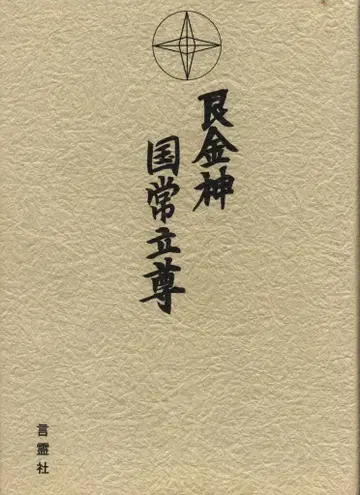 艮金神
国常立尊
言霊社